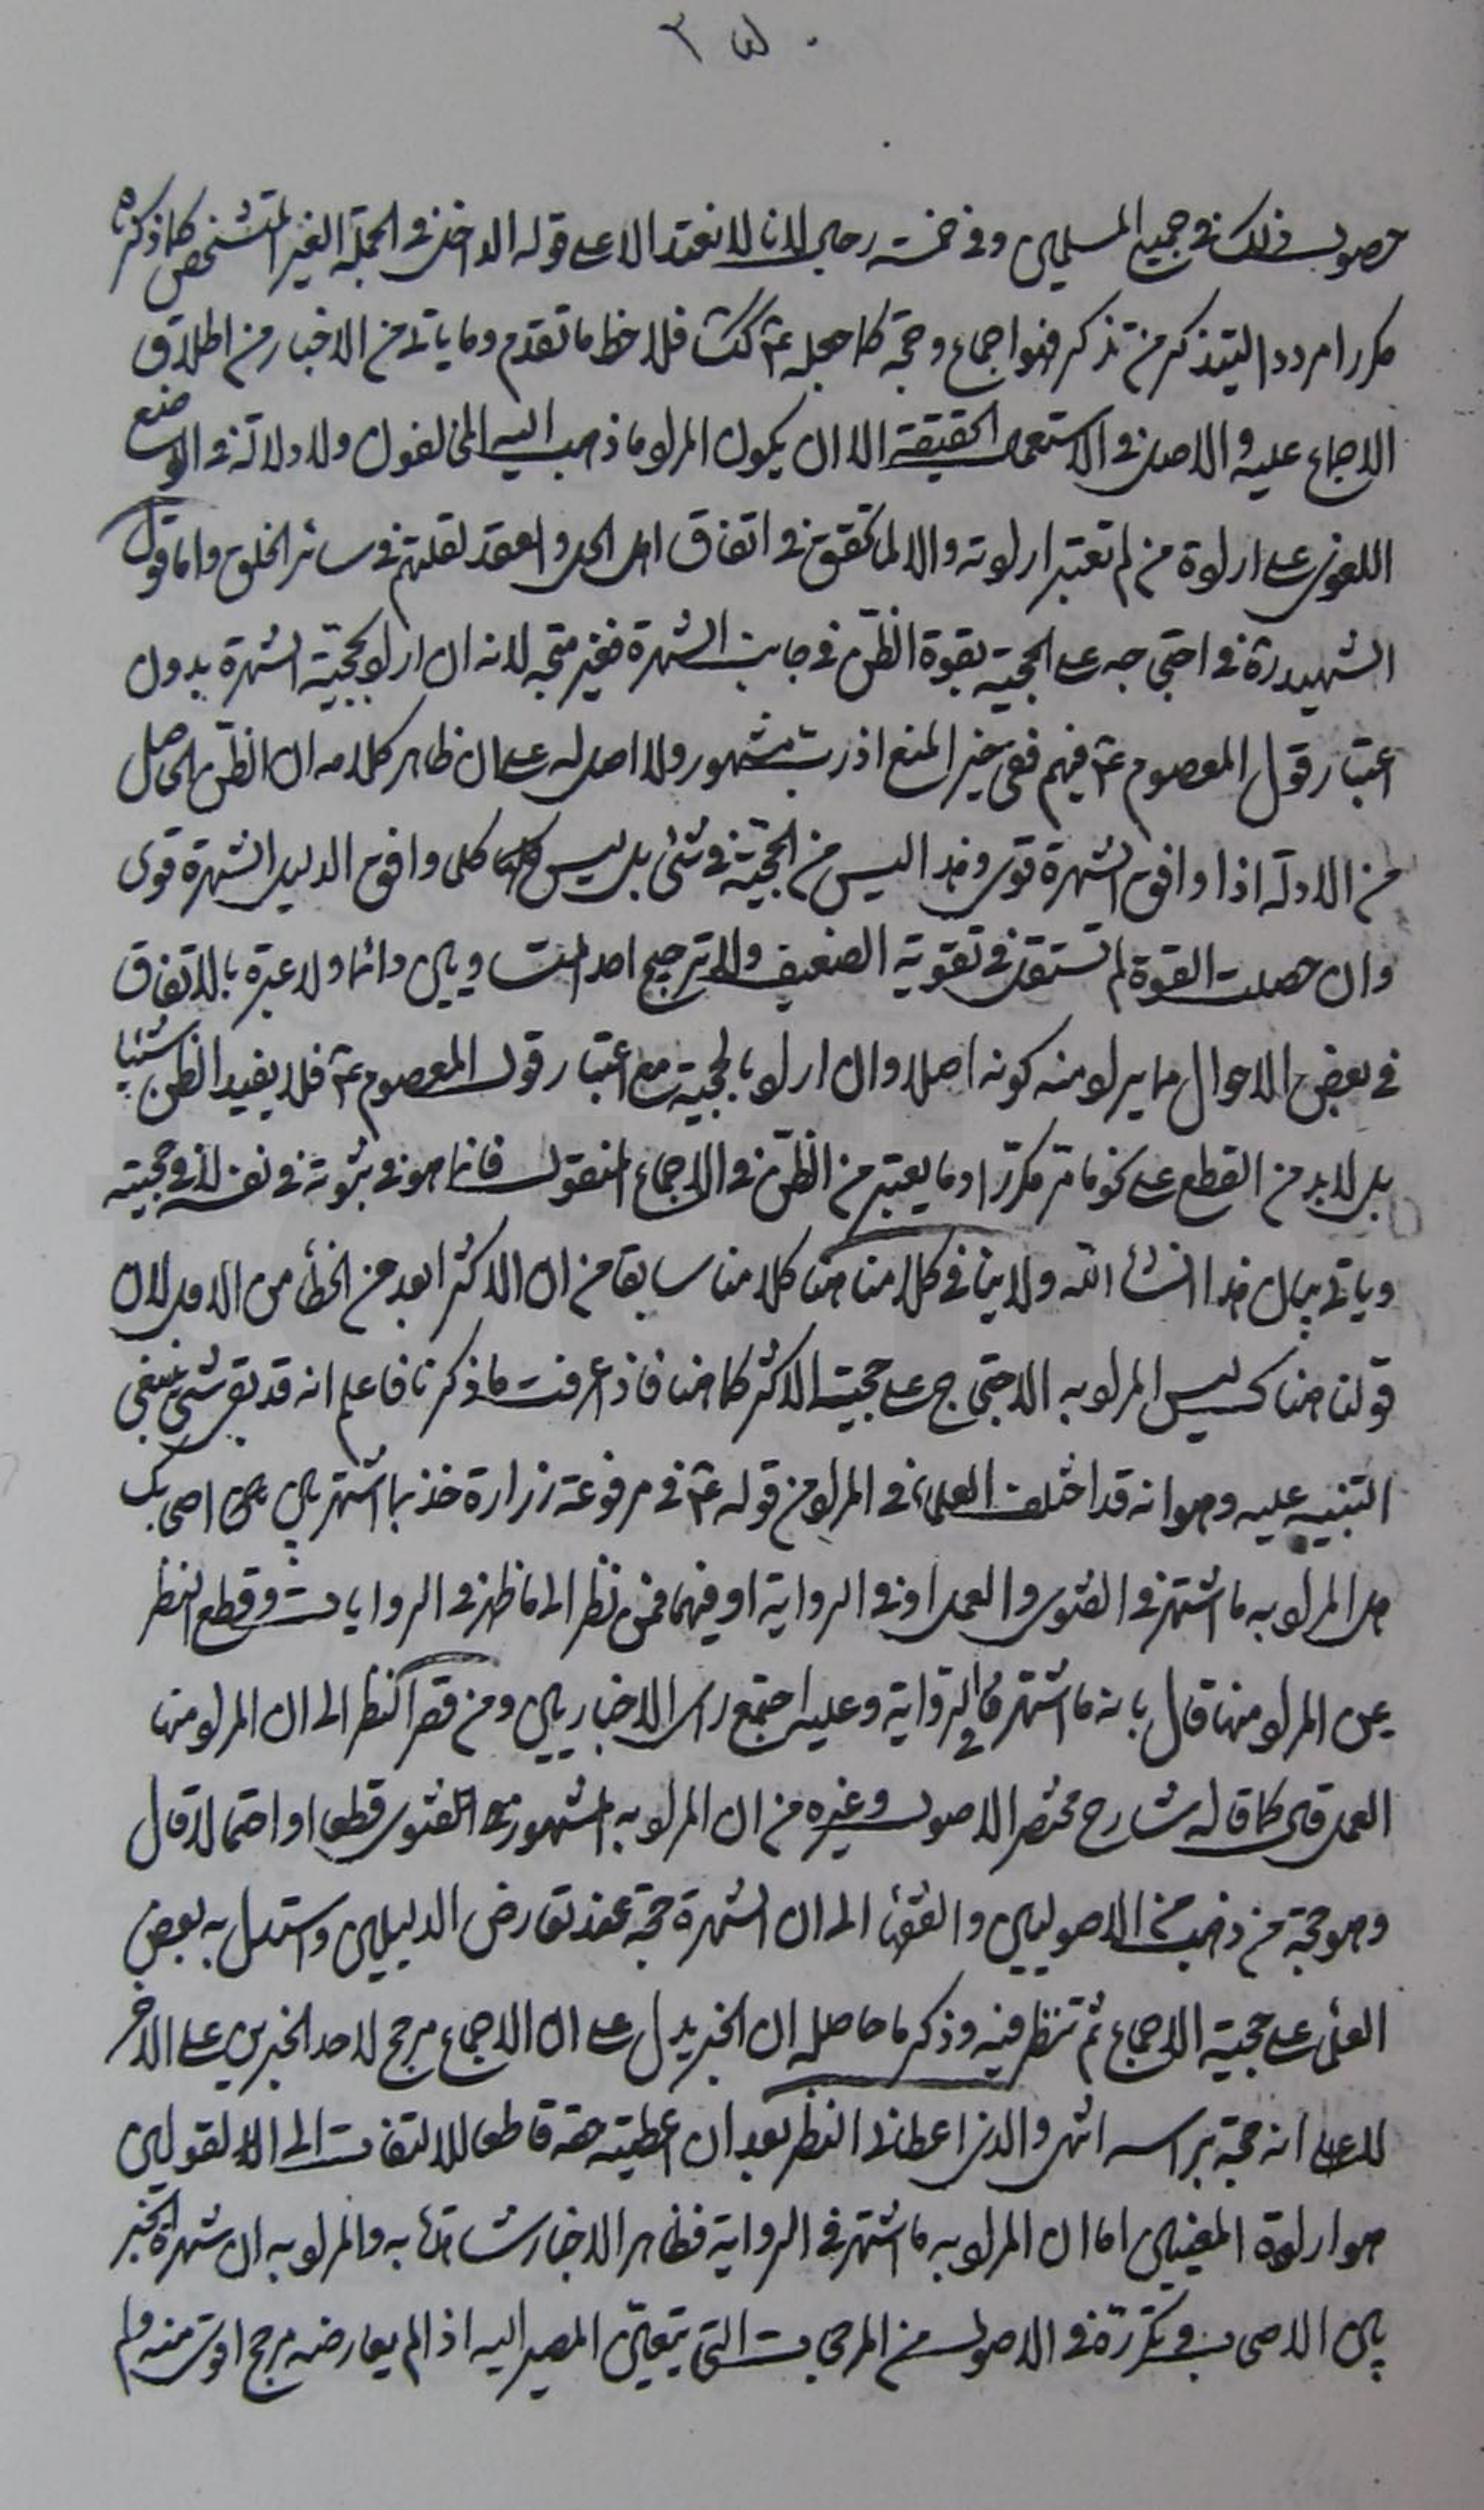 حصول ذلك في جميع المسلمين وفي خمسة رجال لانا لا نعتمد الا على قوله الداخل في الجملة الغير المتشخص كما ذكرناه
مكررا مرددا ليتذكر من تذكر فهو اجماع وحجة كما جعله ع كك فلاحظ ما تقدم وما ياتي من الاخبار من اطلاق
الاجماع عليه والاصل في الاستعمال الحقيقة الا ان يكون المراد ما ذهب اليه المخالفون ولا دلالة في الوضع
اللغوي على ارادة من لم تعتبر ارادته والا لما تحقق في اتفاق اهل الحل والعقد لقلتهم في سائر الخلق واما قول
الشهيد ره في احتجاجه على الحجية بقوة الظن في جانب الشهرة فغير متجه لانه ان اراد بحجية الشهرة بدون
اعتبار قول المعصوم ع فيهم ففي حيز المنع اذ رب مشهور ولا اصل له على ان ظاهر كلامه ان الظن الحاصل
من الادلة اذا وافق الشهرة قوى وهذا ليس من الحجية في شئ بل ليس كلما وافق الدليل الشهرة قوى
وان حصلت القوة لم تستقل في تقوية الضعيف والا ترجيح احد المتساويين دائما ولا عبرة بالاتفاق
في بعض الاحوال مما يراد منه كونه اصلا وان اراد بالحجية مع اعتبار قول المعصوم ع فلا يفيد الظن شيئا
بل لا بد من القطع على نحو ما مر مكررا وما يعتبر من الظن في الاجماع المنقول فانما هو في ثبوته في نفسه لا في حجيته
وياتي بيان هذا انشاء الله ولا ينافي كلامنا هنا كلامنا سابقا من ان الاكثر ابعد من الخطأ من الاقل لان
قولنا هناك ليس المراد به الاحتجاج على حجية الاكثر كما هنا فاذا عرفت ما ذكرنا فاعلم انه قد بقى شئ ينبغي
التنبيه عليه وهو انه قد اختلف العلماء في المراد من قوله ع في مرفوعة زرارة خذ بما اشتهر بين اصحابك
هل المراد به ما اشتهر في الفتوى والعمل او في الرواية او فيهما فمن نظر الى ما ظهر في الروايات وقطع النظر
عن المراد منها قال بانه ما اشتهر في الرواية وعليه اجتمع راى الاخباريين ومن قصر النظر الى ان المراد منها
العمل قال كما قاله شارح مختصر الاصول وغيره من ان المراد به المشهور في الفتوى قطعا او احتمالا قال
وهو حجة من ذهب من الاصوليين والفقهاء الى ان الشهرة حجة عند تعارض الدليلين واستدل به بعض
العلماء على حجية الاجماع ثم تنظر فيه وذكر ما حاصله ان الخبر يدل على ان الاجماع مرجح لاحد الخبرين على الاخر
لا على انه حجة براسه انتهى والذي اعطاني النظر بعد ان اعطيته حقه قاطعا للالتفات الى القولين
هو ارادة المعنيين اما ان المراد به ما اشتهر في الرواية فظاهر الاخبار شاهدة به والمراد به ان شهرة الخبر
بين الاصحاب وتكرره في الاصول من المرجحات التي يتعين المصير اليه اذا لم يعارضه مرجح اقوى منه ولم